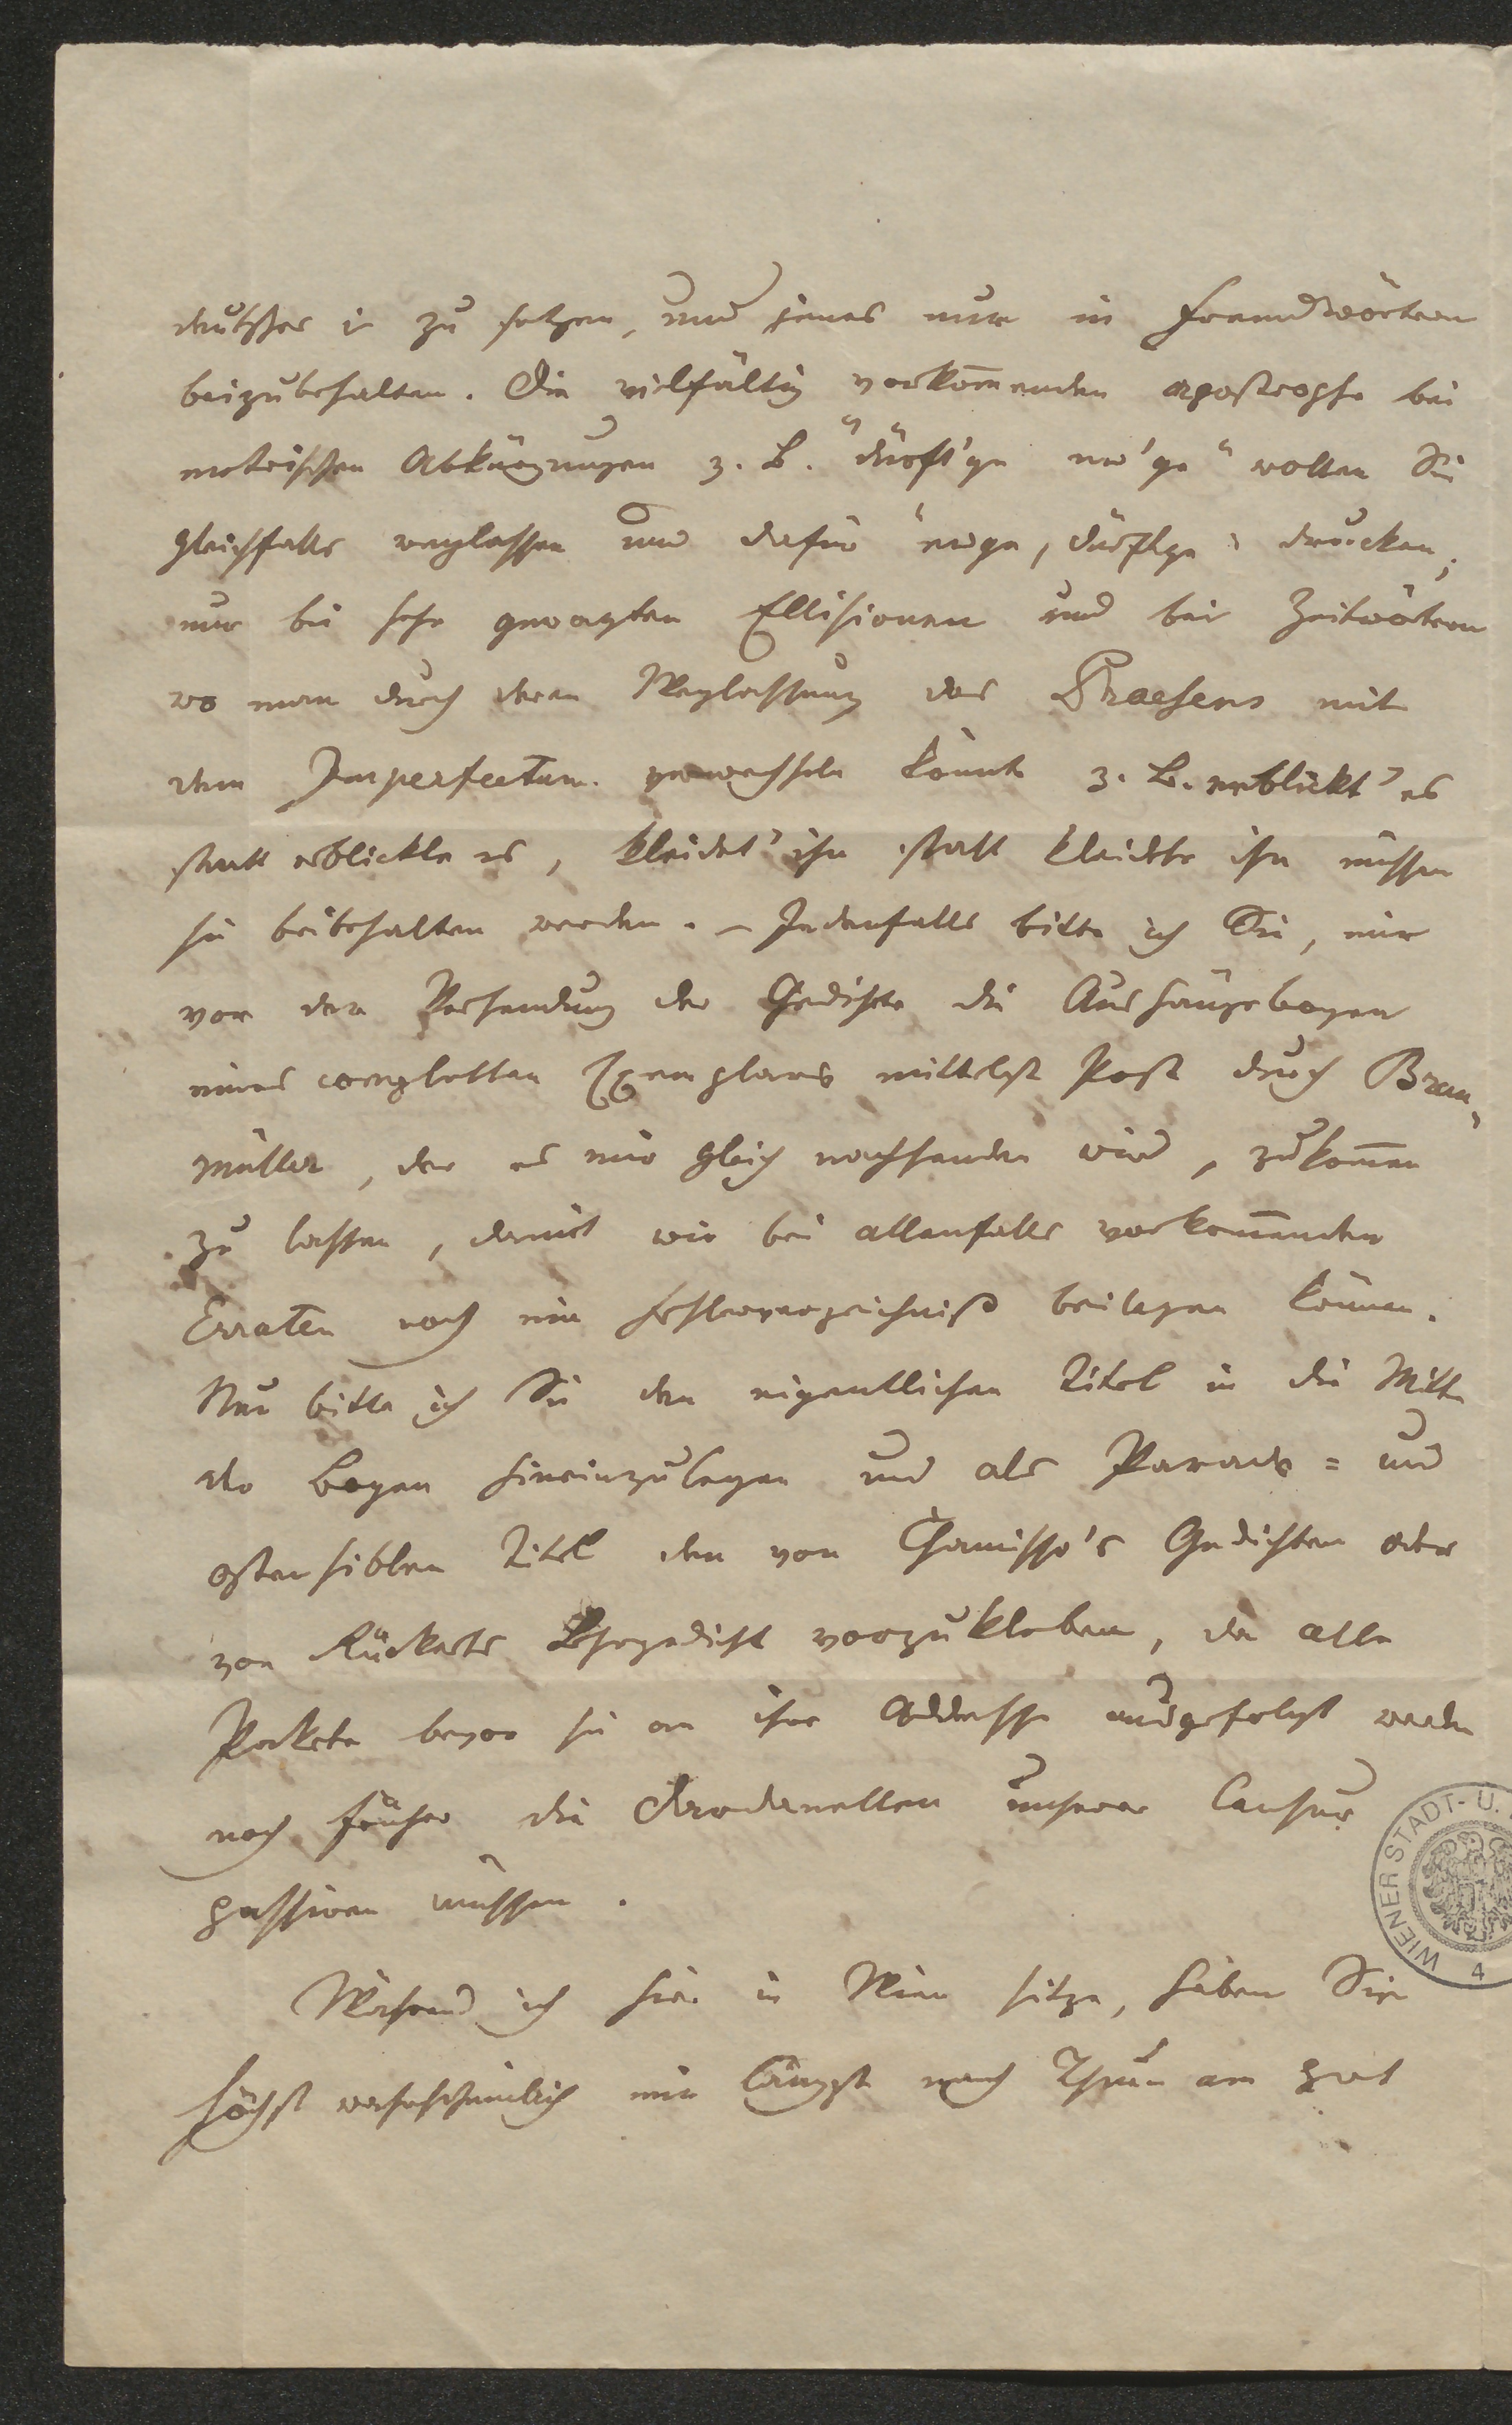 deutsches i zu setzen, und jenes nur in Fremdwörtern
beizubehalten. Die vielfältig vorkom̄enden Apostrophe bei
metrischen Abkürzungen z. B. "dürft'ge ew'ge" wollen Sie
gleichfalls weglassen und dafür "ewge, dürftge" drucken;
nur bei sehr gewagten Ellisionen und bei Zeitwörtern
wo man durch deren Weglassung das Praesens mit
dem Imperfectum verwechseln könnte z. B. erblickt' es
statt erblickte es, kleidet' ihn statt kleidete ihn müssen
sie beibehalten werden. – Jedenfalls bitte ich Sie, mir
vor der Versendung der Gedichte die Aushängebogen
eines completten Exemplars mittelst Post durch Brau-
müller, der es mir gleich nachsenden wird, zukom̄en
zu lassen, damit wir bei allenfalls vorkom̄enden
Erraten noch ein Fehlerverzeichniß beilegen können.
Nur bitte ich Sie den eigentlichen Titel in die Mitte
der Bogen hineinzulegen und als Parade= und
ostensiblen Titel den von Chamisso's Gedichten oder
von Rückerts Lehrgedicht vorzukleben, da alle
Packete bevor sie an ihre Addresse ausgefolgt werden
noch früher die Dardanellen unserer Censur
passiren müssen.
Während ich hier in Wien sitze, haben Sie
höchst wahrscheinlich mir längst nach Thurn am Hart
WIENER STADT- U.
4